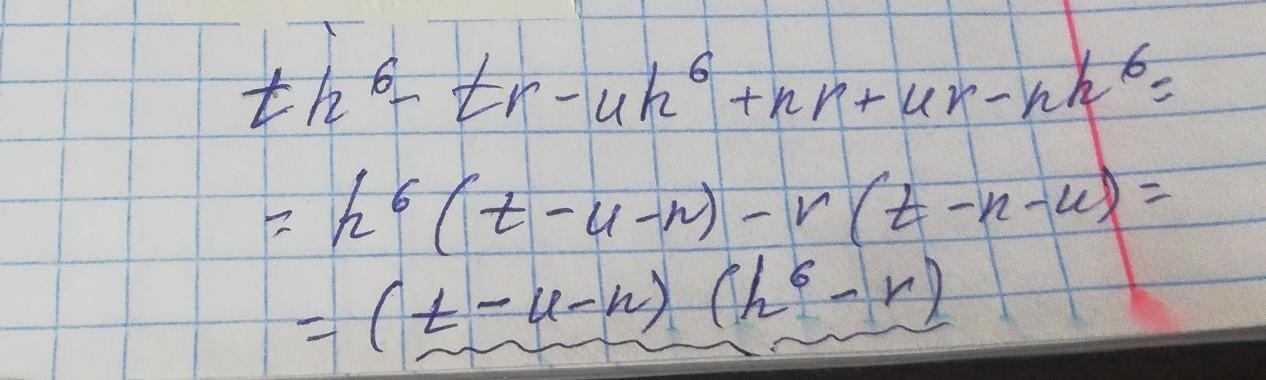 th⁶ - tr - uh⁶ + nr + ur - nh⁶ =
= h⁶ (t - u - n) - r (t - n - u) =
= (t - u - n) (h⁶ - r)